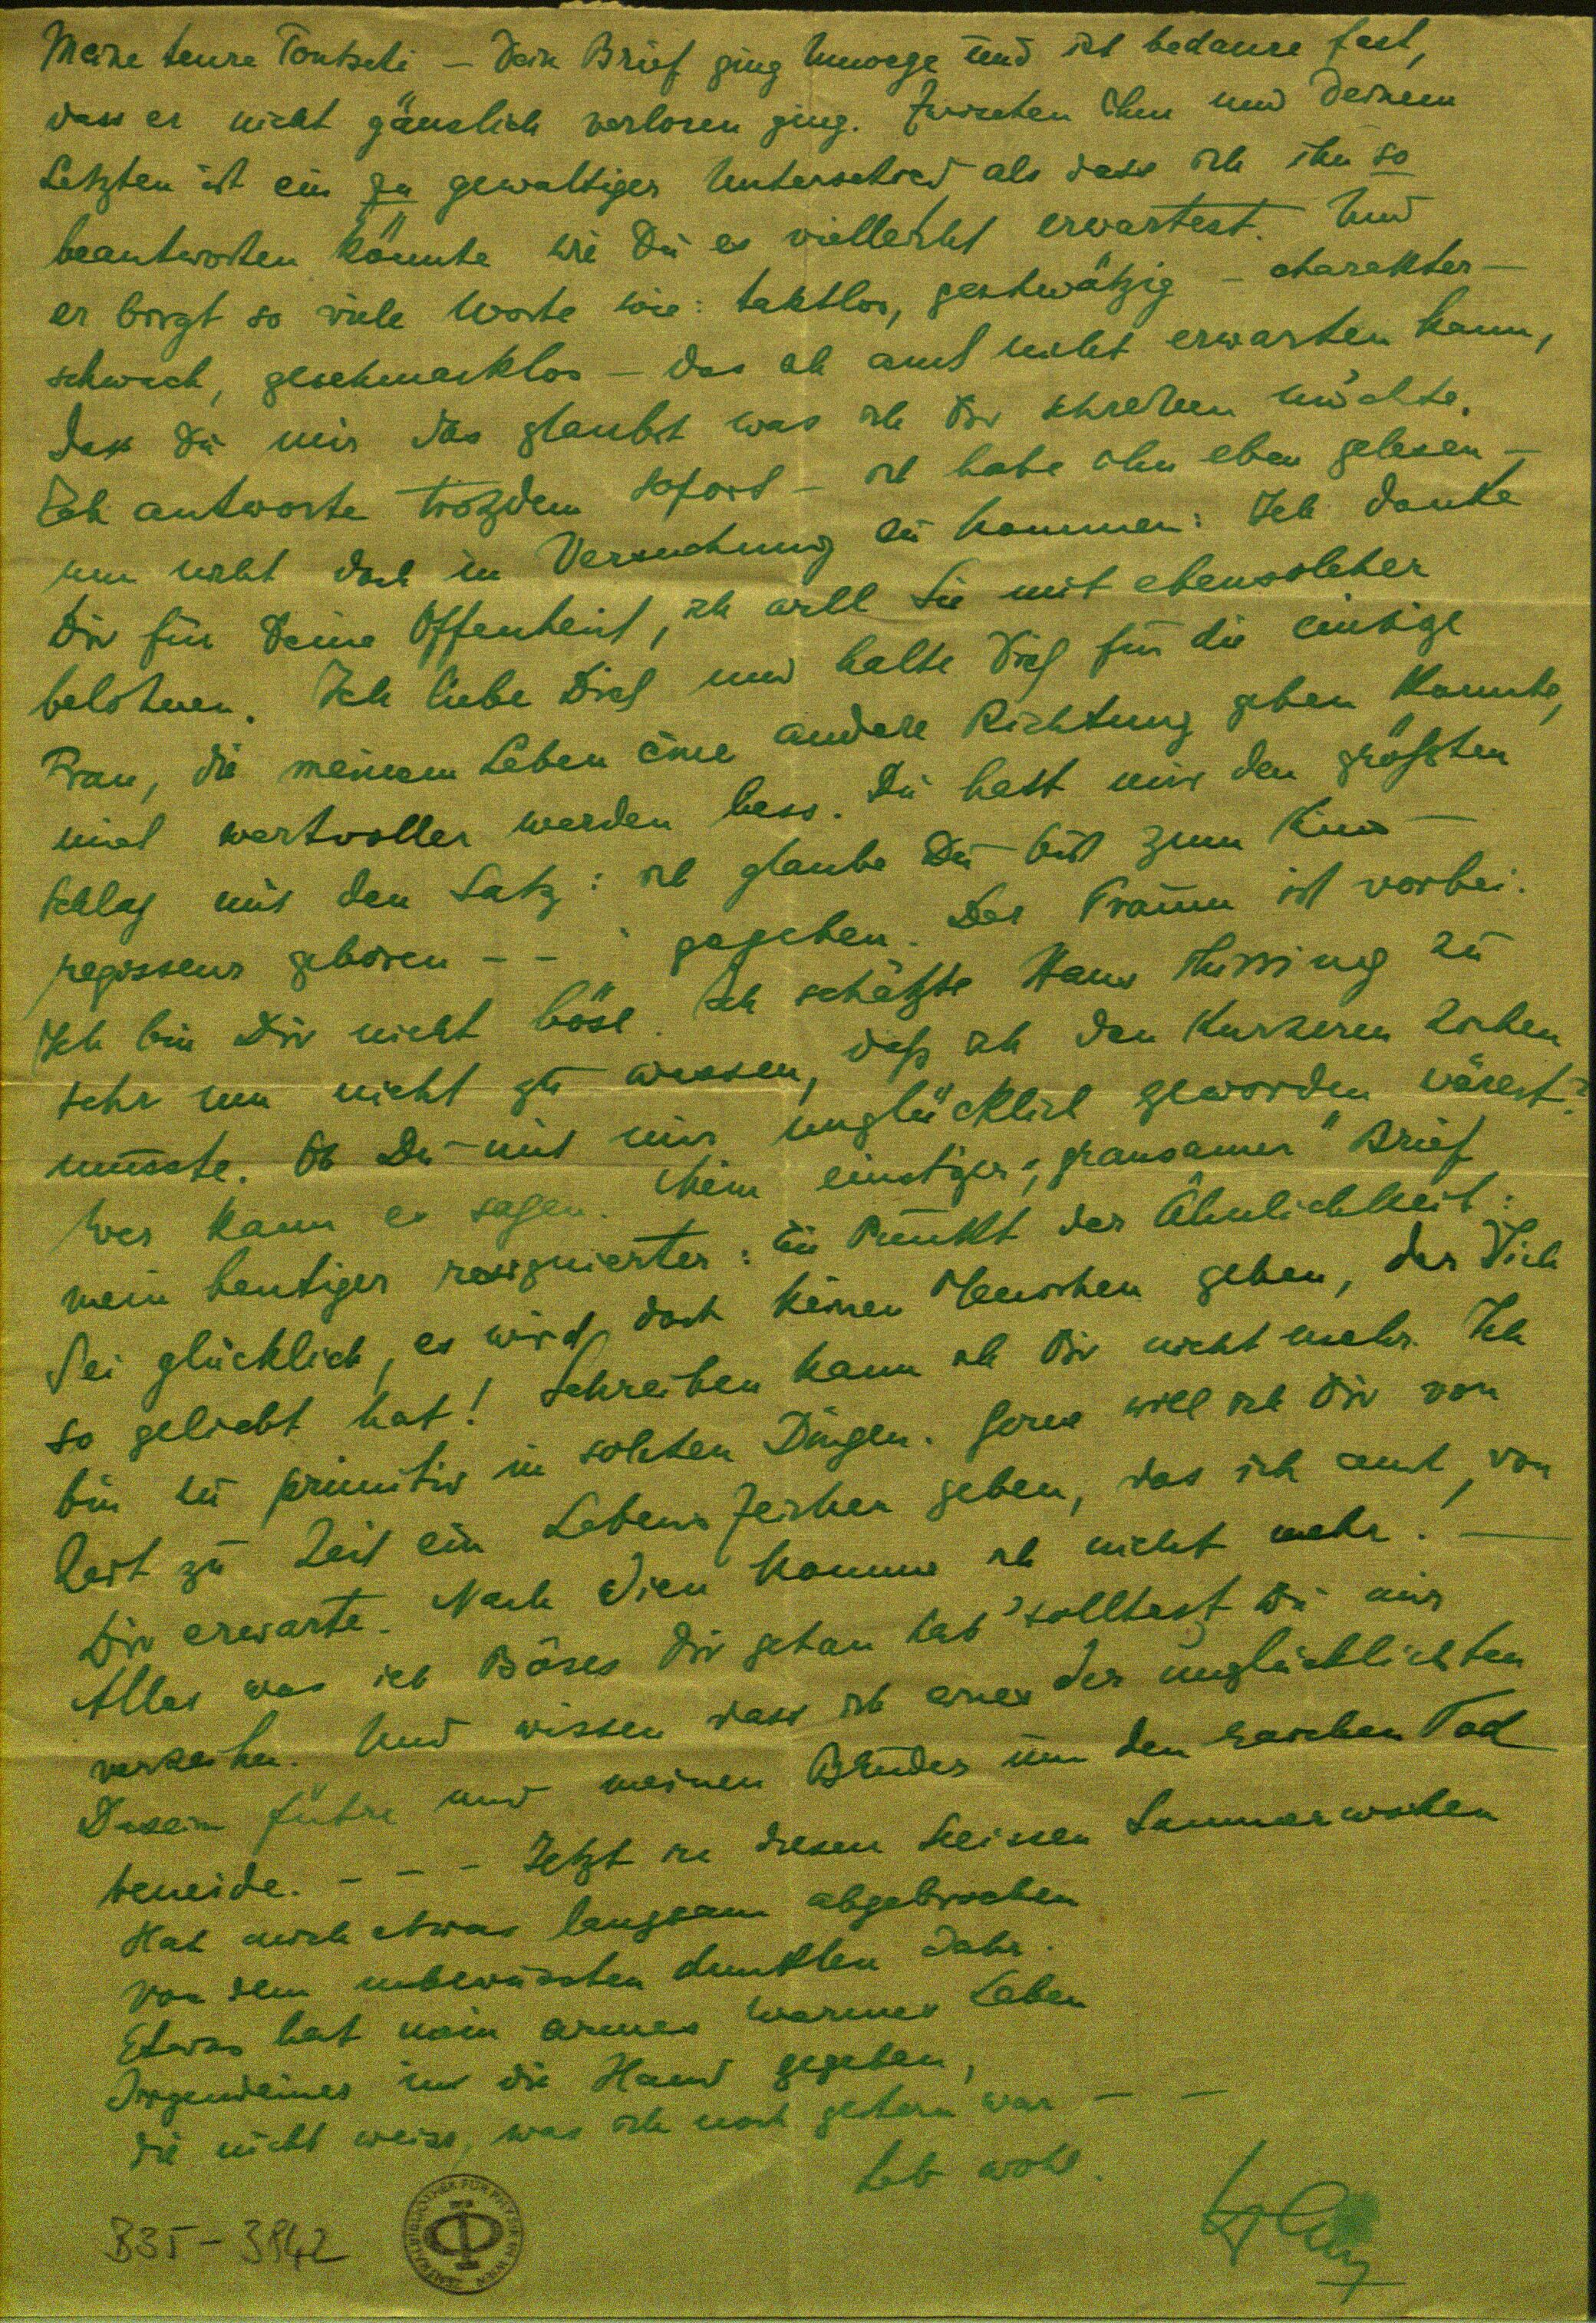 Meine teure Tontschi – Dein Brief ging Umwege und ich bedaure fast,
dass er nicht gänzlich verloren ging. Zwischen ihm und Deinem
Letzten ist ein zu gewaltiger Unterschied als dass ich ihn so
beantworten könnte wie Du es vielleicht erwartest. Und
er birgt so viele Worte wie: taktlos, geschwätzig – charakter–
schwach, geschmacklos – das ich auch nicht erwarten kann,
dass Du mir das glaubst was ich Dir schreiben möchte.
Ich antworte trotzdem sofort – ich habe ihn eben gelesen –
um nicht doch in Versuchung zu kommen: Ich danke
Dir für Deine Offenheit, ich will Sie mit ebensolcher
belohnen. Ich liebe Dich und halte Dich für die einzige
Frau, die meinem Leben eine andere Richtung geben konnte,
mich wertvoller werden liess. Du hast mir den größten
Schlag mit den Satz: ich glaube Du bist zum Kino –
regisseur geboren – – gegeben. Der Traum ist vorbei.
Ich bin Dir nicht böse. Ich schätzte Hans Thirring zu
sehr um nicht zu wissen, daß ich den Kürzeren ziehen
musste. Ob Du mit mir unglücklich geworden wärest?
Wer kann es sagen. Mein einstiger „grausamer" Brief
mein heutiger resignierter: ein Punkt der Ähnlichkeit:
Sei glücklich, es wird doch keinen Menschen geben, der Dich
so geliebt hat! Schreiben kann ich Dir nicht mehr. Ich
bin zu primitiv in solchen Dingen. Gerne will ich Dir von
Zeit zu Zeit ein Lebenszeichen geben, das ich auch, von
Dir erwarte. Nach Wien komme ich nicht mehr. –
Alles was ich Böses Dir getan hab' solltest Du mir
verzeihen. Und wissen dass ich eines der unglücklichsten
Dasein führe und meinen Bruder um den raschen Tod
beneide. – – – Jetzt in diesen heissen Sommerwochen
Hat mich etwas langsam abgebrochen
von dem unbewussten dunklen Jahr.
Etwas hat mein armes warmes Leben
Irgendeiner in die Hand gegeben,
die nicht weiss, was ich noch gestern war – –
Leb wohl.
B35 – 3842
ZENTRALBIBLIOTHEK FÜR PHYSIK IN WIEN